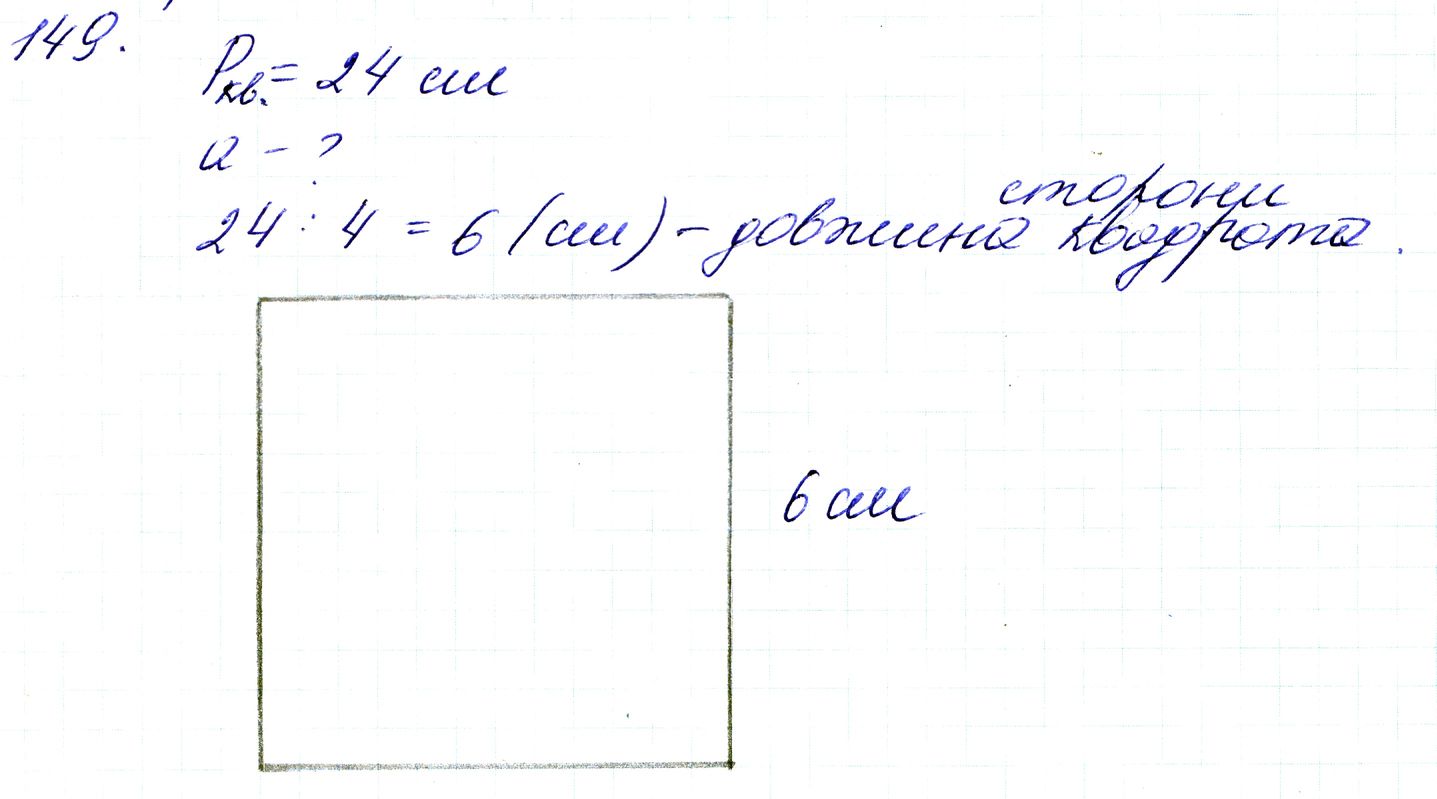 149.
Pкв. = 24 см
a - ?
24 : 4 = 6 (см) - довжина сторони квадрата.
6 см